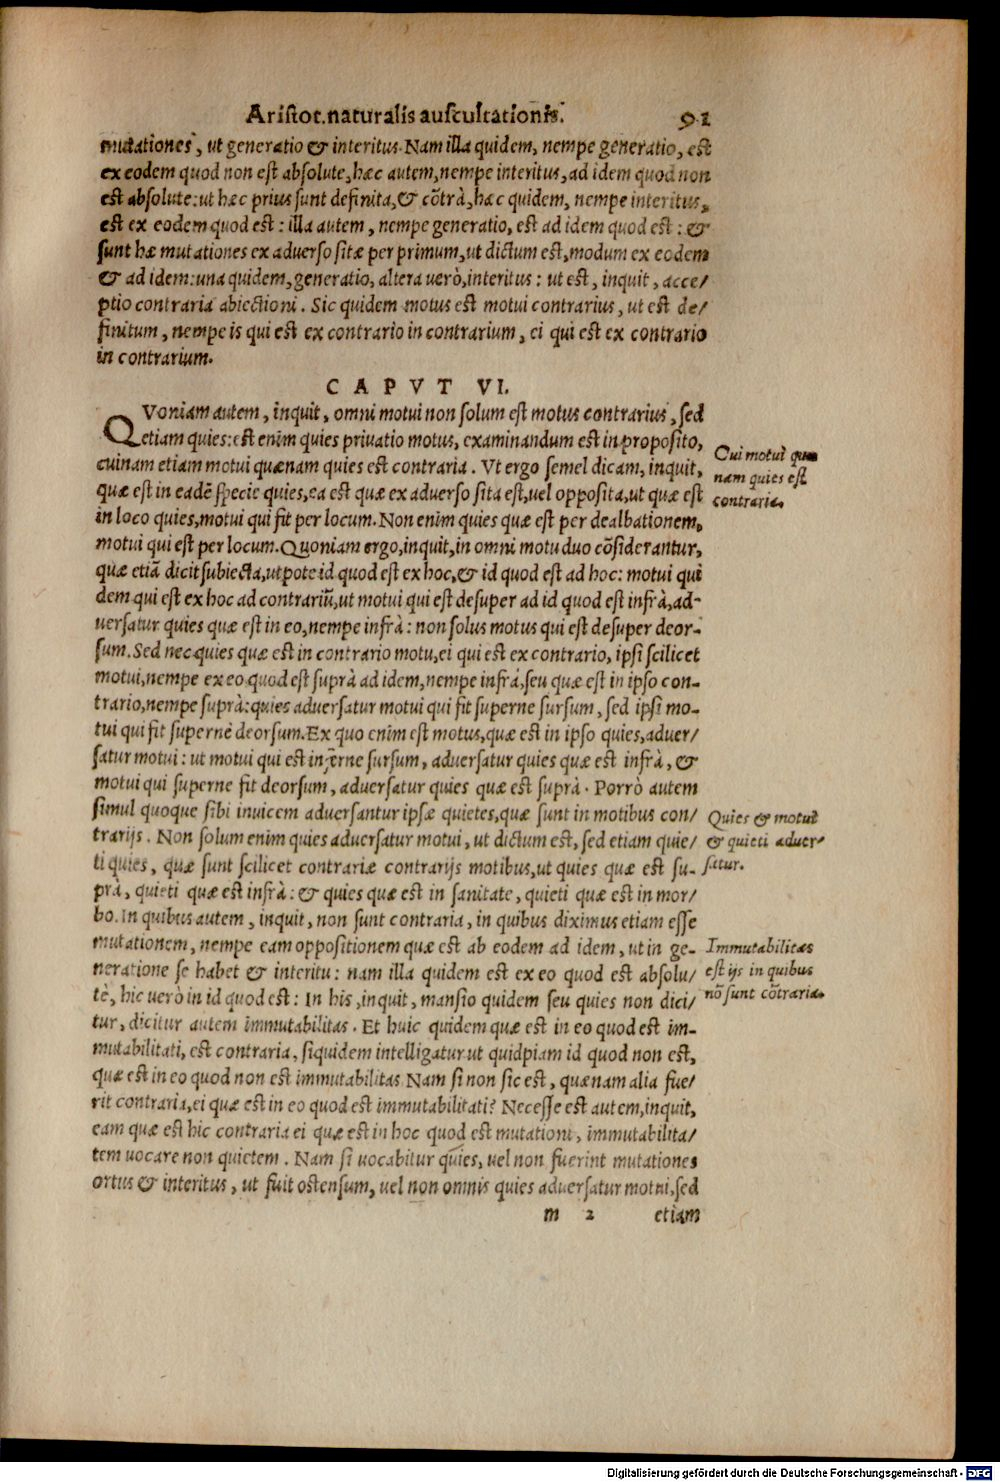 Aristot. naturalis auscultationis. 91
mutationes, ut generatio & interitus. Nam illa quidem, nempe generatio, est
ex eodem quod non est absolute, hæc autem, nempe interitus, ad idem quod non
est absolute: ut hæc prius sunt definita, & cõtrà, hæc quidem, nempe interitus,
est ex eodem quod est: illa autem, nempe generatio, est ad idem quod est: &
sunt hæ mutationes ex adverso sitæ per primum, ut dictum est, modum ex eodem
& ad idem: una quidem, generatio, altera verò, interitus: ut est, inquit, acce/
ptio contraria abiectioni. Sic quidem motus est motui contrarius, ut est de/
finitum, nempe is qui est ex contrario in contrarium, ei qui est ex contrario
in contrarium.
CAPVT VI.
QVoniam autem, inquit, omni motui non solum est motus contrarius, sed
etiam quies: est enim quies privatio motus, examinandum est in proposito,
cuinam etiam motui quænam quies est contraria. Vt ergo semel dicam, inquit,
Cui motui quæ
nam quies est
contraria.
quæ est in eadē specie quies, ea est quæ ex adverso sita est, vel opposita, ut quæ est
in loco quies, motui qui fit per locum. Non enim quies quæ est per dealbationem,
motui qui est per locum. Quoniam ergo, inquit, in omni motu duo cõsiderantur,
quæ etiã dicit subiecta, utpote id quod est ex hoc, & id quod est ad hoc: motui qui
dem qui est ex hoc ad contrariũ, ut motui qui est desuper ad id quod est infrà, ad-
versatur quies quæ est in eo, nempe infrà: non solus motus qui est desuper deor-
sum. Sed nec quies quæ est in contrario motu, ei qui est ex contrario, ipsi scilicet
motui, nempe ex eo quod est suprà ad idem, nempe infrà, seu quæ est in ipso con-
trario, nempe suprà: quies adversatur motui qui fit superne sursum, sed ipsi mo-
tui qui fit supernè deorsum. Ex quo enim est motus, quæ est in ipso quies, adver/
satur motui: ut motui qui est inferne sursum, adversatur quies quæ est infrà, &
motui qui superne fit deorsum, adversatur quies quæ est suprà. Porrò autem
simul quoque sibi invicem adversantur ipsæ quietes, quæ sunt in motibus con/
trarijs. Non solum enim quies adversatur motui, ut dictum est, sed etiam quie/
Quies & motui
& quieti adver/
satur.
ti quies, quæ sunt scilicet contrariæ contrarijs motibus, ut quies quæ est su-
prà, quieti quæ est infrà: & quies quæ est in sanitate, quieti quæ est in mor-
bo. In quibus autem, inquit, non sunt contraria, in quibus diximus etiam esse
mutationem, nempe eam oppositionem quæ est ab eodem ad idem, ut in ge-
Immutabilitas
est ijs in quibus
nõ sunt cõtraria.
neratione se habet & interitu: nam illa quidem est ex eo quod est absolu/
tè, hic verò in id quod est: In his, inquit, mansio quidem seu quies non dici/
tur, dicitur autem immutabilitas. Et huic quidem quæ est in eo quod est im-
mutabilitati, est contraria, siquidem intelligatur ut quidpiam id quod non est,
quæ est in eo quod non est immutabilitas. Nam si non sic est, quænam alia fue/
rit contraria, ei quæ est in eo quod est immutabilitati? Necesse est autem, inquit,
eam quæ est hic contraria ei quæ est in hoc quod est mutationi, immutabilita/
tem vocare non quietem. Nam si vocabitur quies, vel non fuerint mutationes
ortus & interitus, ut fuit ostensum, vel non omnis quies adversatur motui, sed
m 2 etiam
Digitalisierung gefördert durch die Deutsche Forschungsgemeinschaft - DFG